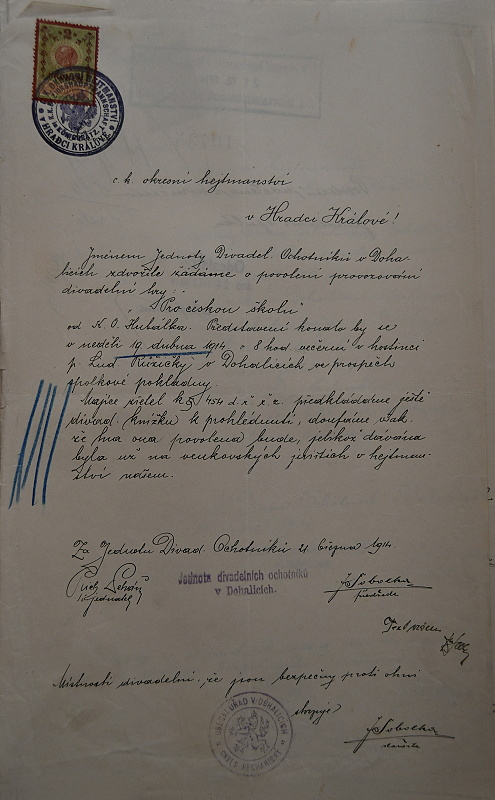 2
HRADCI KRÁLOVÉ
c. k. okresní hejtmanství
v Hradci Králové!
Jménem Jednoty Divadel. Ochotníků v Doha-
licích zdvořile žádáme o povolení provozování
divadelní hry:
„Pro českou školu"
od K. O. Hubálka. Představení konalo by se
v neděli 19. dubna 1914 o 8 hod. večerní v hostinci
p. Lud. Růžičky v Dohalicích ve prospěch
spolkové pokladny.
Majíce zřetel k § 454 d. ř. ř. z. předkládáme ještě
divad. knížku k prohlédnutí, doufáme však
že hra ona povolena bude, jelikož dávána
byla už na venkovských jevištích v hejtman-
ství našem.
Za Jednotu Divad. Ochotníků 21 března 1914
jednatel
Jednota divadelních ochotníků
v Dohalicích.
J Sobotka
předseda
Místnosti divadelní, že jsou bezpečny proti ohni
stvrzuje
OBECNÍ ÚŘAD V DOHALICÍCH
OKRES NECHANICKÝ
J Sobotka
starosta